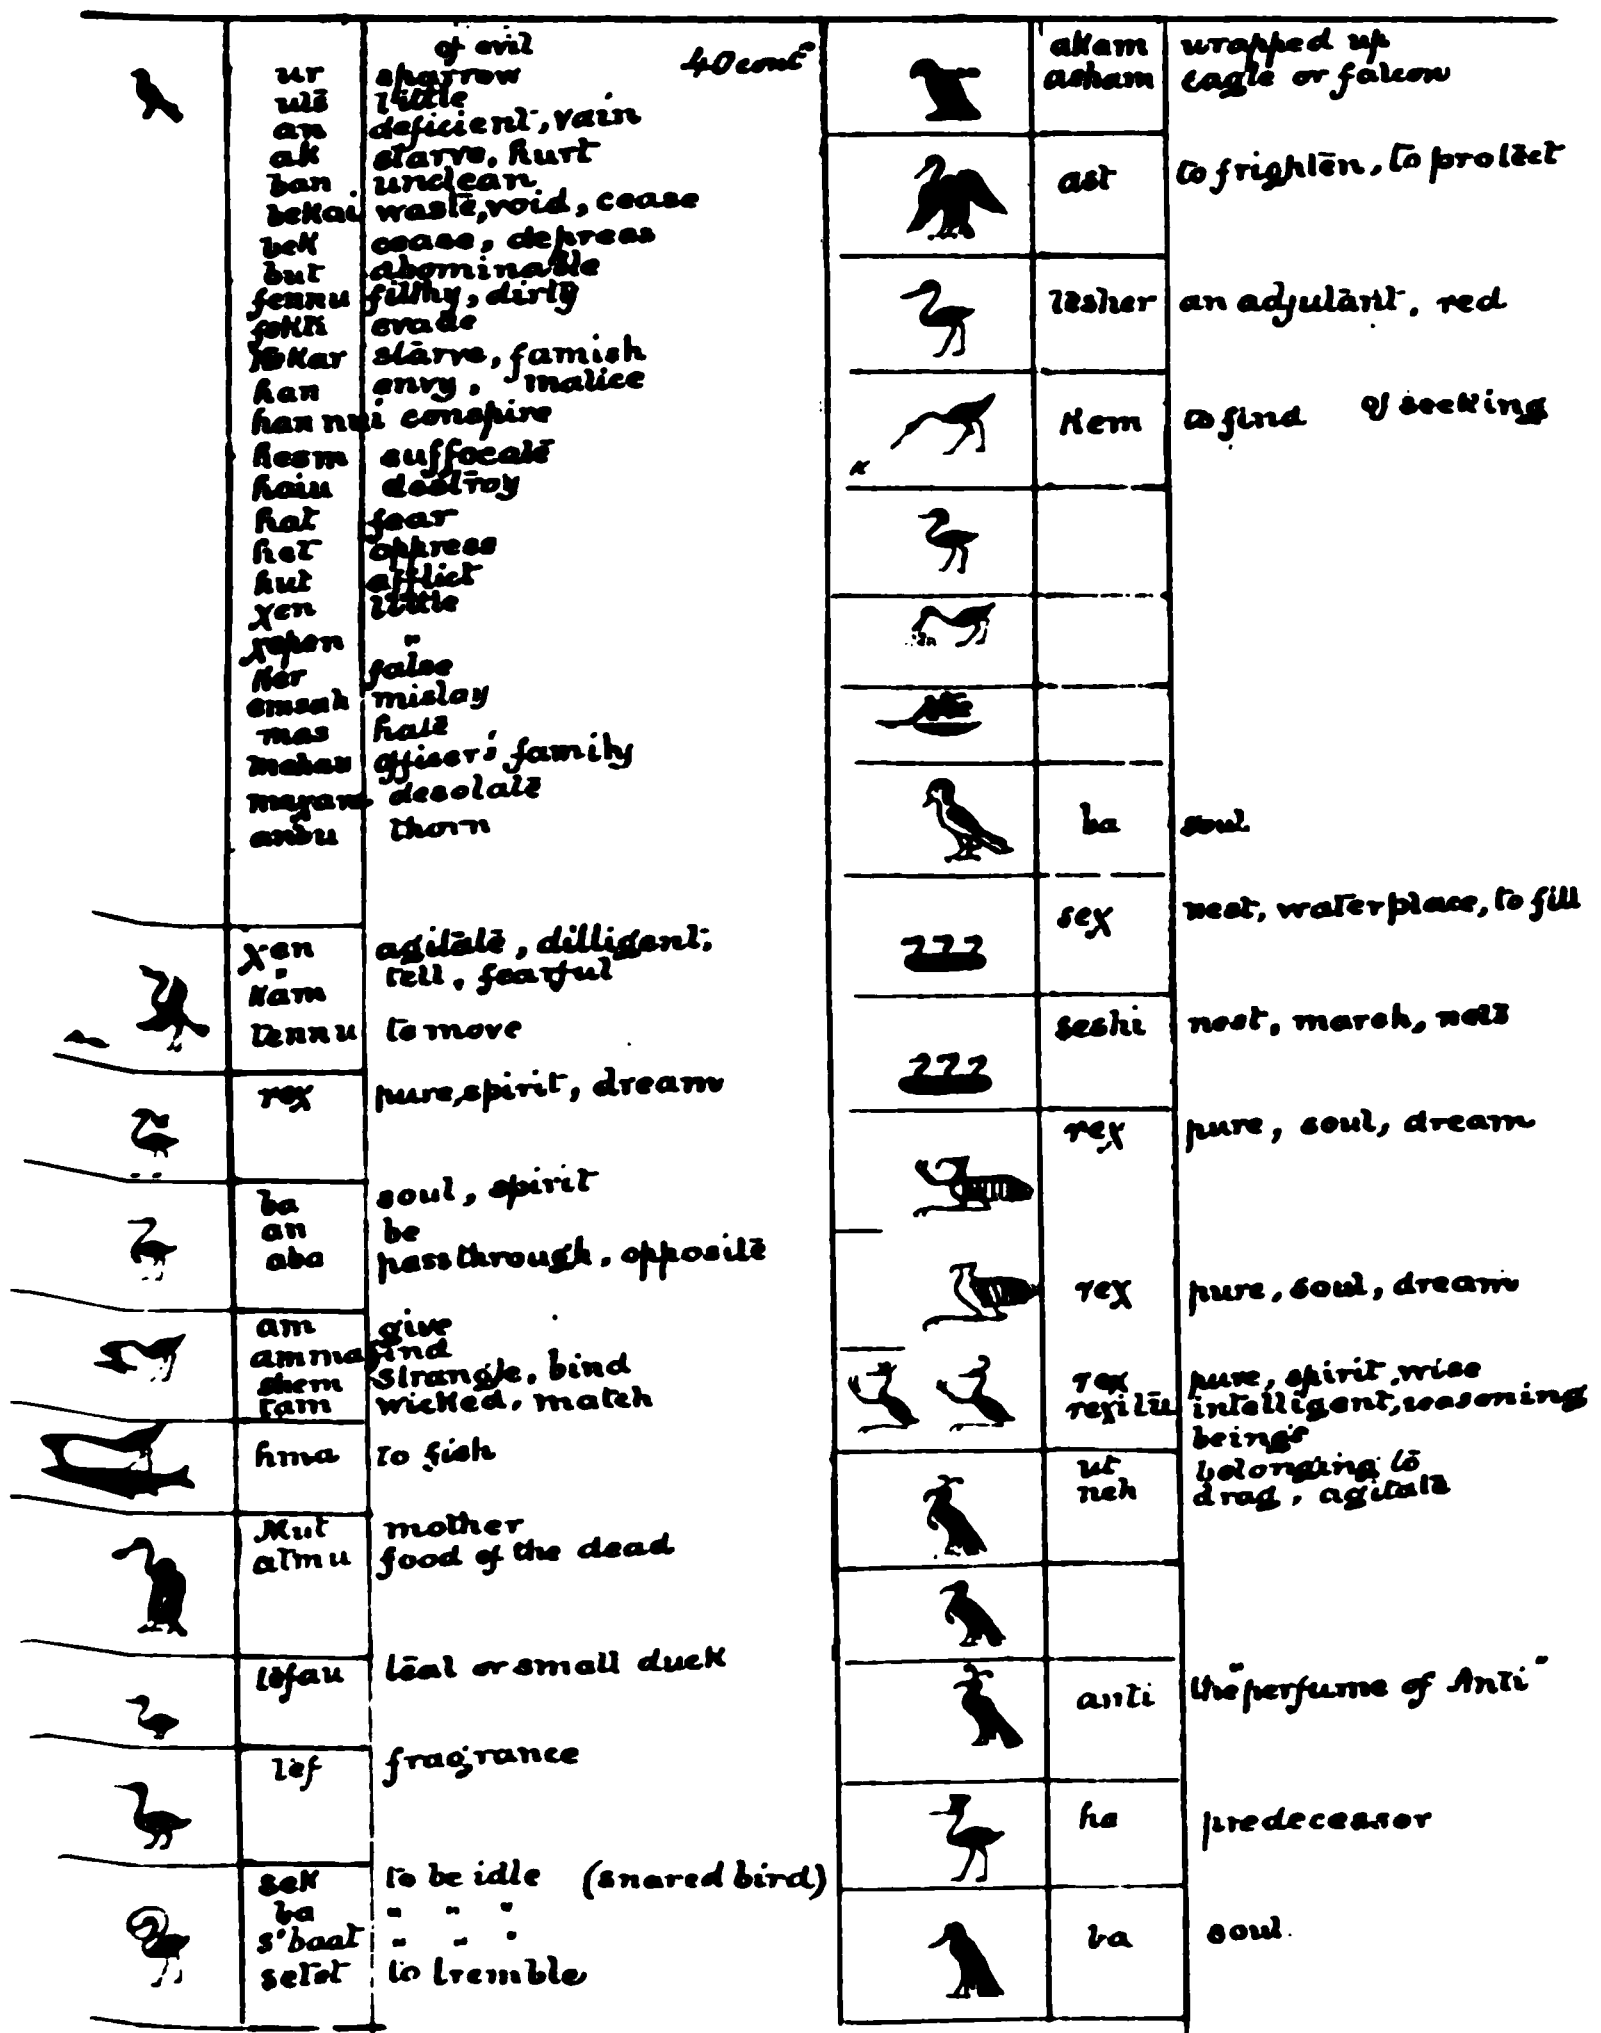 of evil 40 cont
ur sparrow
utē little
an deficient, vain
ak starve, hurt
ban unclean
bekai waste, void, cease
bek cease, depress
but abominable
fennu filthy, dirty
evade
starve, famish
han envy, malice
han nui conspire
hesm suffocatē
haiu destroy
hat fear
het oppress
hut afflict
χen little
χepen "
ker false
emsah mislay
mas hatē
officer's family
desolatē
anbu thorn
χen agitātē, dilligent,
kam tell, fearful
tennu to move
reχ pure, spirit, dream
ba soul, spirit
an be
aba pass through, oppositē
am give
amma find
shem strangle, bind
tam wicked, match
hma to fish
Mut mother
atmu food of the dead
tefau tēal or small duck
tef fragrance
sek to be idle (snared bird)
ba " " "
s'baat " " "
setet to tremble
akam wrapped up
asham eagle or falcon
ast to frightēn, to protēct
tesher an adjutānt, red
kem to find of seeking
k
ba soul
seχ nest, water place, to fill
seshi nest, marsh, nets
reχ pure, soul, dream
reχ pure, soul, dream
reχ pure, spirit, wise
reχitū intelligent, reasoning
beings
ut belonging to
neh drag, agitatē
anti the "perfume of Anti"
ha predecessor
ba soul.